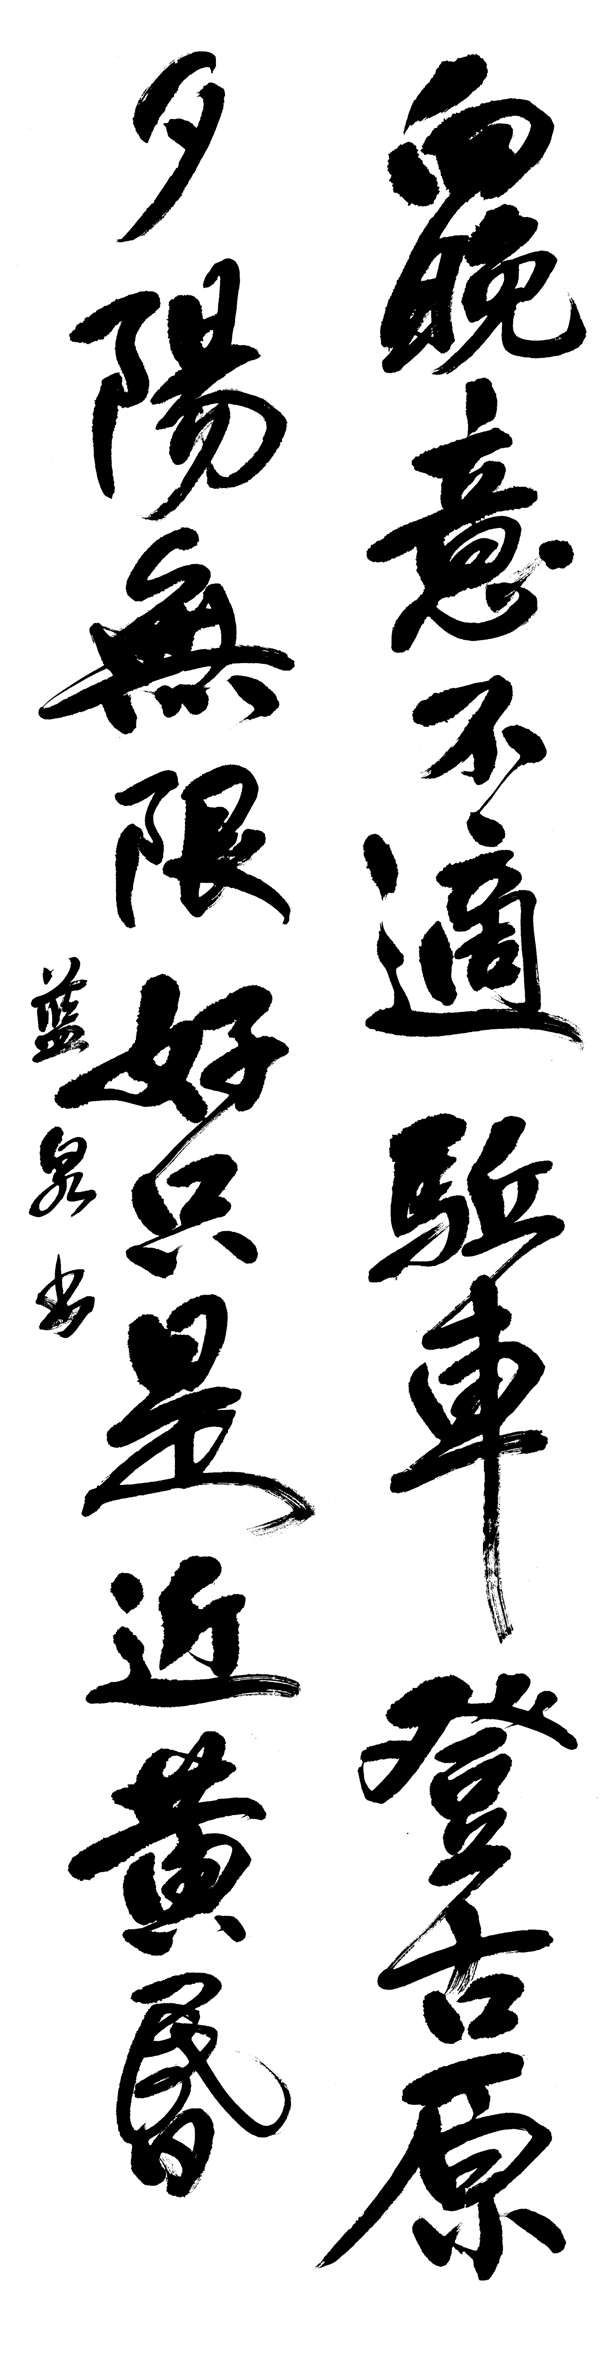 向晚意不適駈車登古原
夕陽無限好只是近黄昬
藍泉书